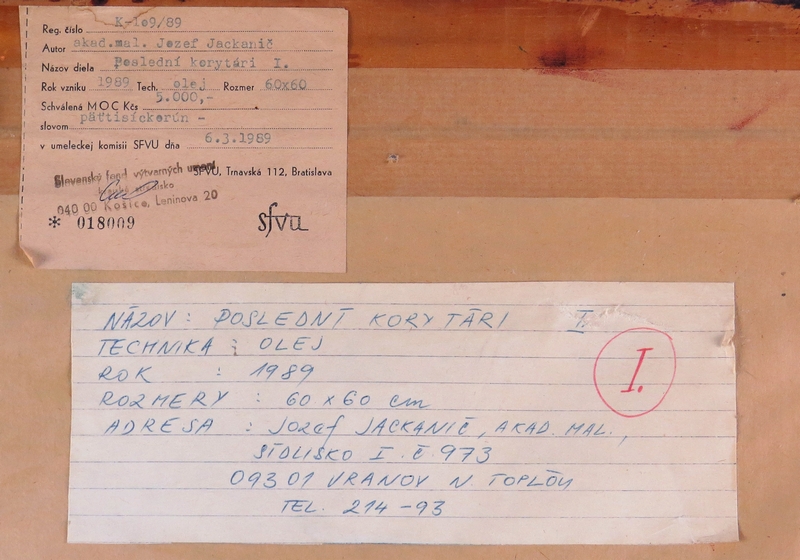 Reg. číslo K-109/89
Autor akad.mal. Jozef Jackanič
Názov diela Poslední korytári I.
Rok vzniku 1989 Tech. olej Rozmer 60x60
Schválená MOC Kčs 5.000,-
slovom päťtisíckorún -
v umeleckej komisii SFVU dňa 6.3.1989
SFVU, Trnavská 112, Bratislava
Slovenský fond výtvarných umení
040 00 Košice, Leninova 20
* 018009
sfvu
NÁZOV : POSLEDNÍ KORYTÁRI I.
TECHNIKA : OLEJ
ROK : 1989
ROZMERY : 60 x 60 cm
ADRESA : JOZEF JACKANIČ, AKAD. MAL.,
SÍDLISKO I. Č. 973
093 01 VRANOV N TOPĽOU
TEL. 214-93
I.